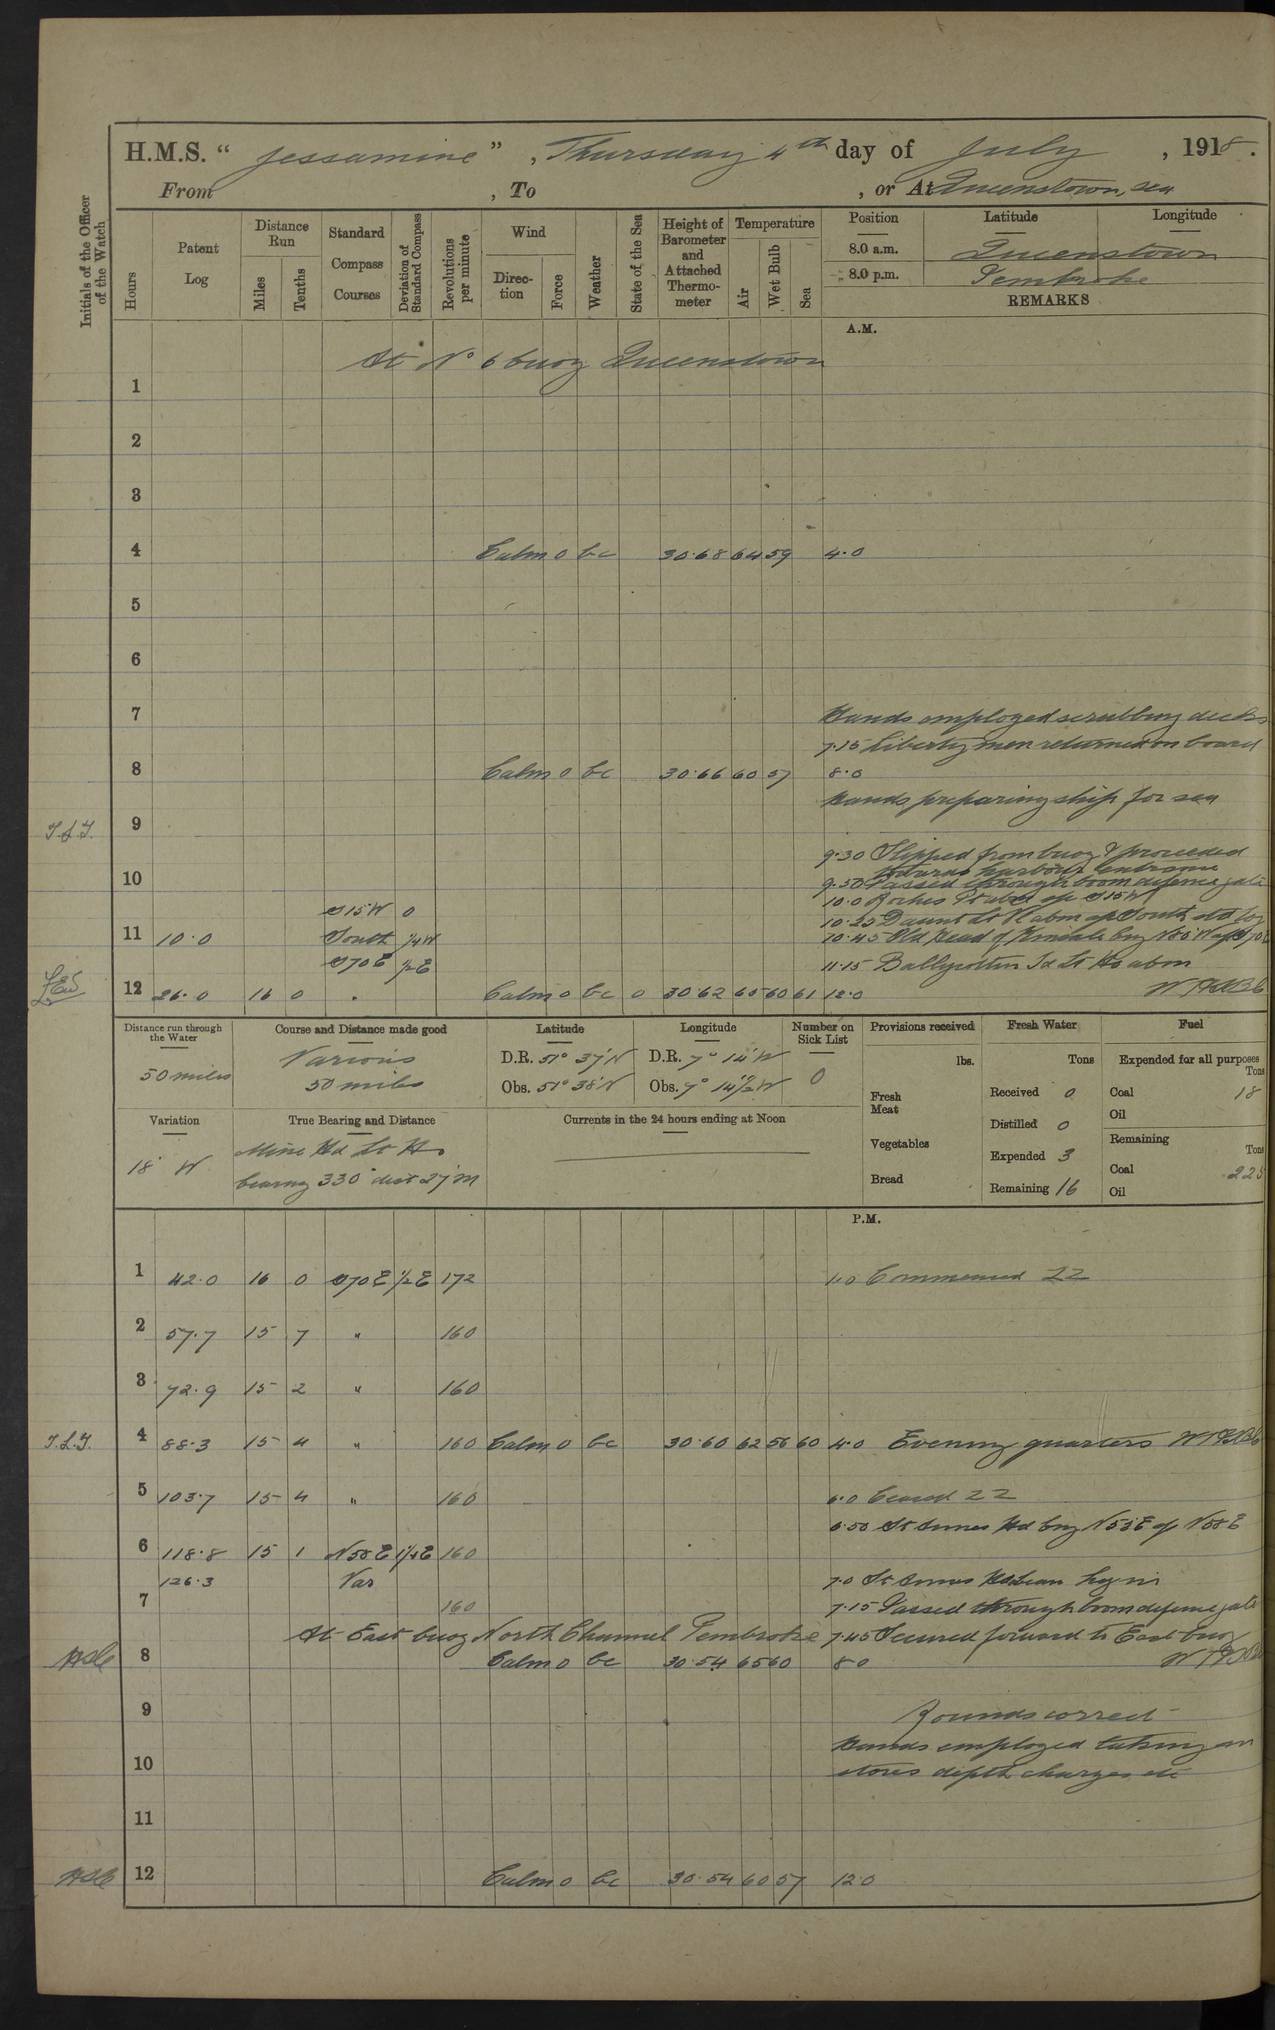 H.M.S. “ Jessamine ” , Thursday 4th day of July , 1918 .
From , To , or At Queenstown, sea
Initials of the Officer of the Watch
Hours
Patent Log
Distance Run
Miles
Tenths
Standard Compass Courses
Deviation of Standard Compass
Revolutions per minute
Wind
Direction
Force
Weather
State of the Sea
Height of Barometer and Attached Thermometer
Temperature
Air
Wet Bulb
Sea
Position Latitude Longitude
8.0 a.m. Queenstown
8.0 p.m. Pembroke
REMARKS
A.M.
At No 6 buoy Queenstown
1
2
3
4 Calm 0 bc 30.68 64 59 4.0
5
6
7 Hands employed scrubbing decks
7.15 Liberty men returned on board
8 Calm 0 bc 30.66 60 57 8.0
Hands preparing ship for sea
9
9.30 Slipped from buoy & proceeded
towards harbour entrance
10 9.50 Passed through boom defence gate
10.0 Roches Pt abm S15W
S15W 0 10.25 Daunt Lt Vl abm South
11 10.0 South 1/4W 10.45 Old Head of Kinsale
S70E 1/2E 11.15 Ballycotton Id Lt Ho abm
12 26.0 16 0 " Calm 0 bc 0 30.62 65 60 61 12.0
Distance run through the Water
50 miles
Course and Distance made good
Various
50 miles
Latitude
D.R. 51° 37'N
Obs. 51° 38'N
Longitude
D.R. 7° 14'W
Obs. 7° 14½'W
Number on Sick List
0
Provisions received
lbs.
Fresh Meat
Vegetables
Bread
Fresh Water
Tons
Received 0
Distilled 0
Expended 3
Remaining 16
Fuel
Expended for all purposes
Tons
Coal 18
Oil
Remaining
Tons
Coal 225
Oil
Variation
18° W
True Bearing and Distance
Mine Hd Lt Ho
bearing 330° dist 27'M
Currents in the 24 hours ending at Noon
P.M.
1 42.0 16 0 S70E 1/2E 172 1.0 Commenced ZZ
2 57.7 15 7 " 160
3 72.9 15 2 " 160
T.L.T. 4 88.3 15 4 " 160 Calm 0 bc 30.60 62 56 60 4.0 Evening quarters
5 103.7 15 4 " 160 Ceased ZZ
St Annes Hd brg N55E N58E
6 118.8 15 1 N58E 160
126.3 Var 7.0 St Annes Hd
7 160 7.15 Passed through boom defence gate
At East buoy North Channel Pembroke 7.45 Secured forward to East buoy
8 Calm 0 bc 30.54 65 60 8.0
9 Rounds correct
10 Hands employed taking in
stores depth charges etc
11
12 Calm 0 bc 30.54 60 57 12.0